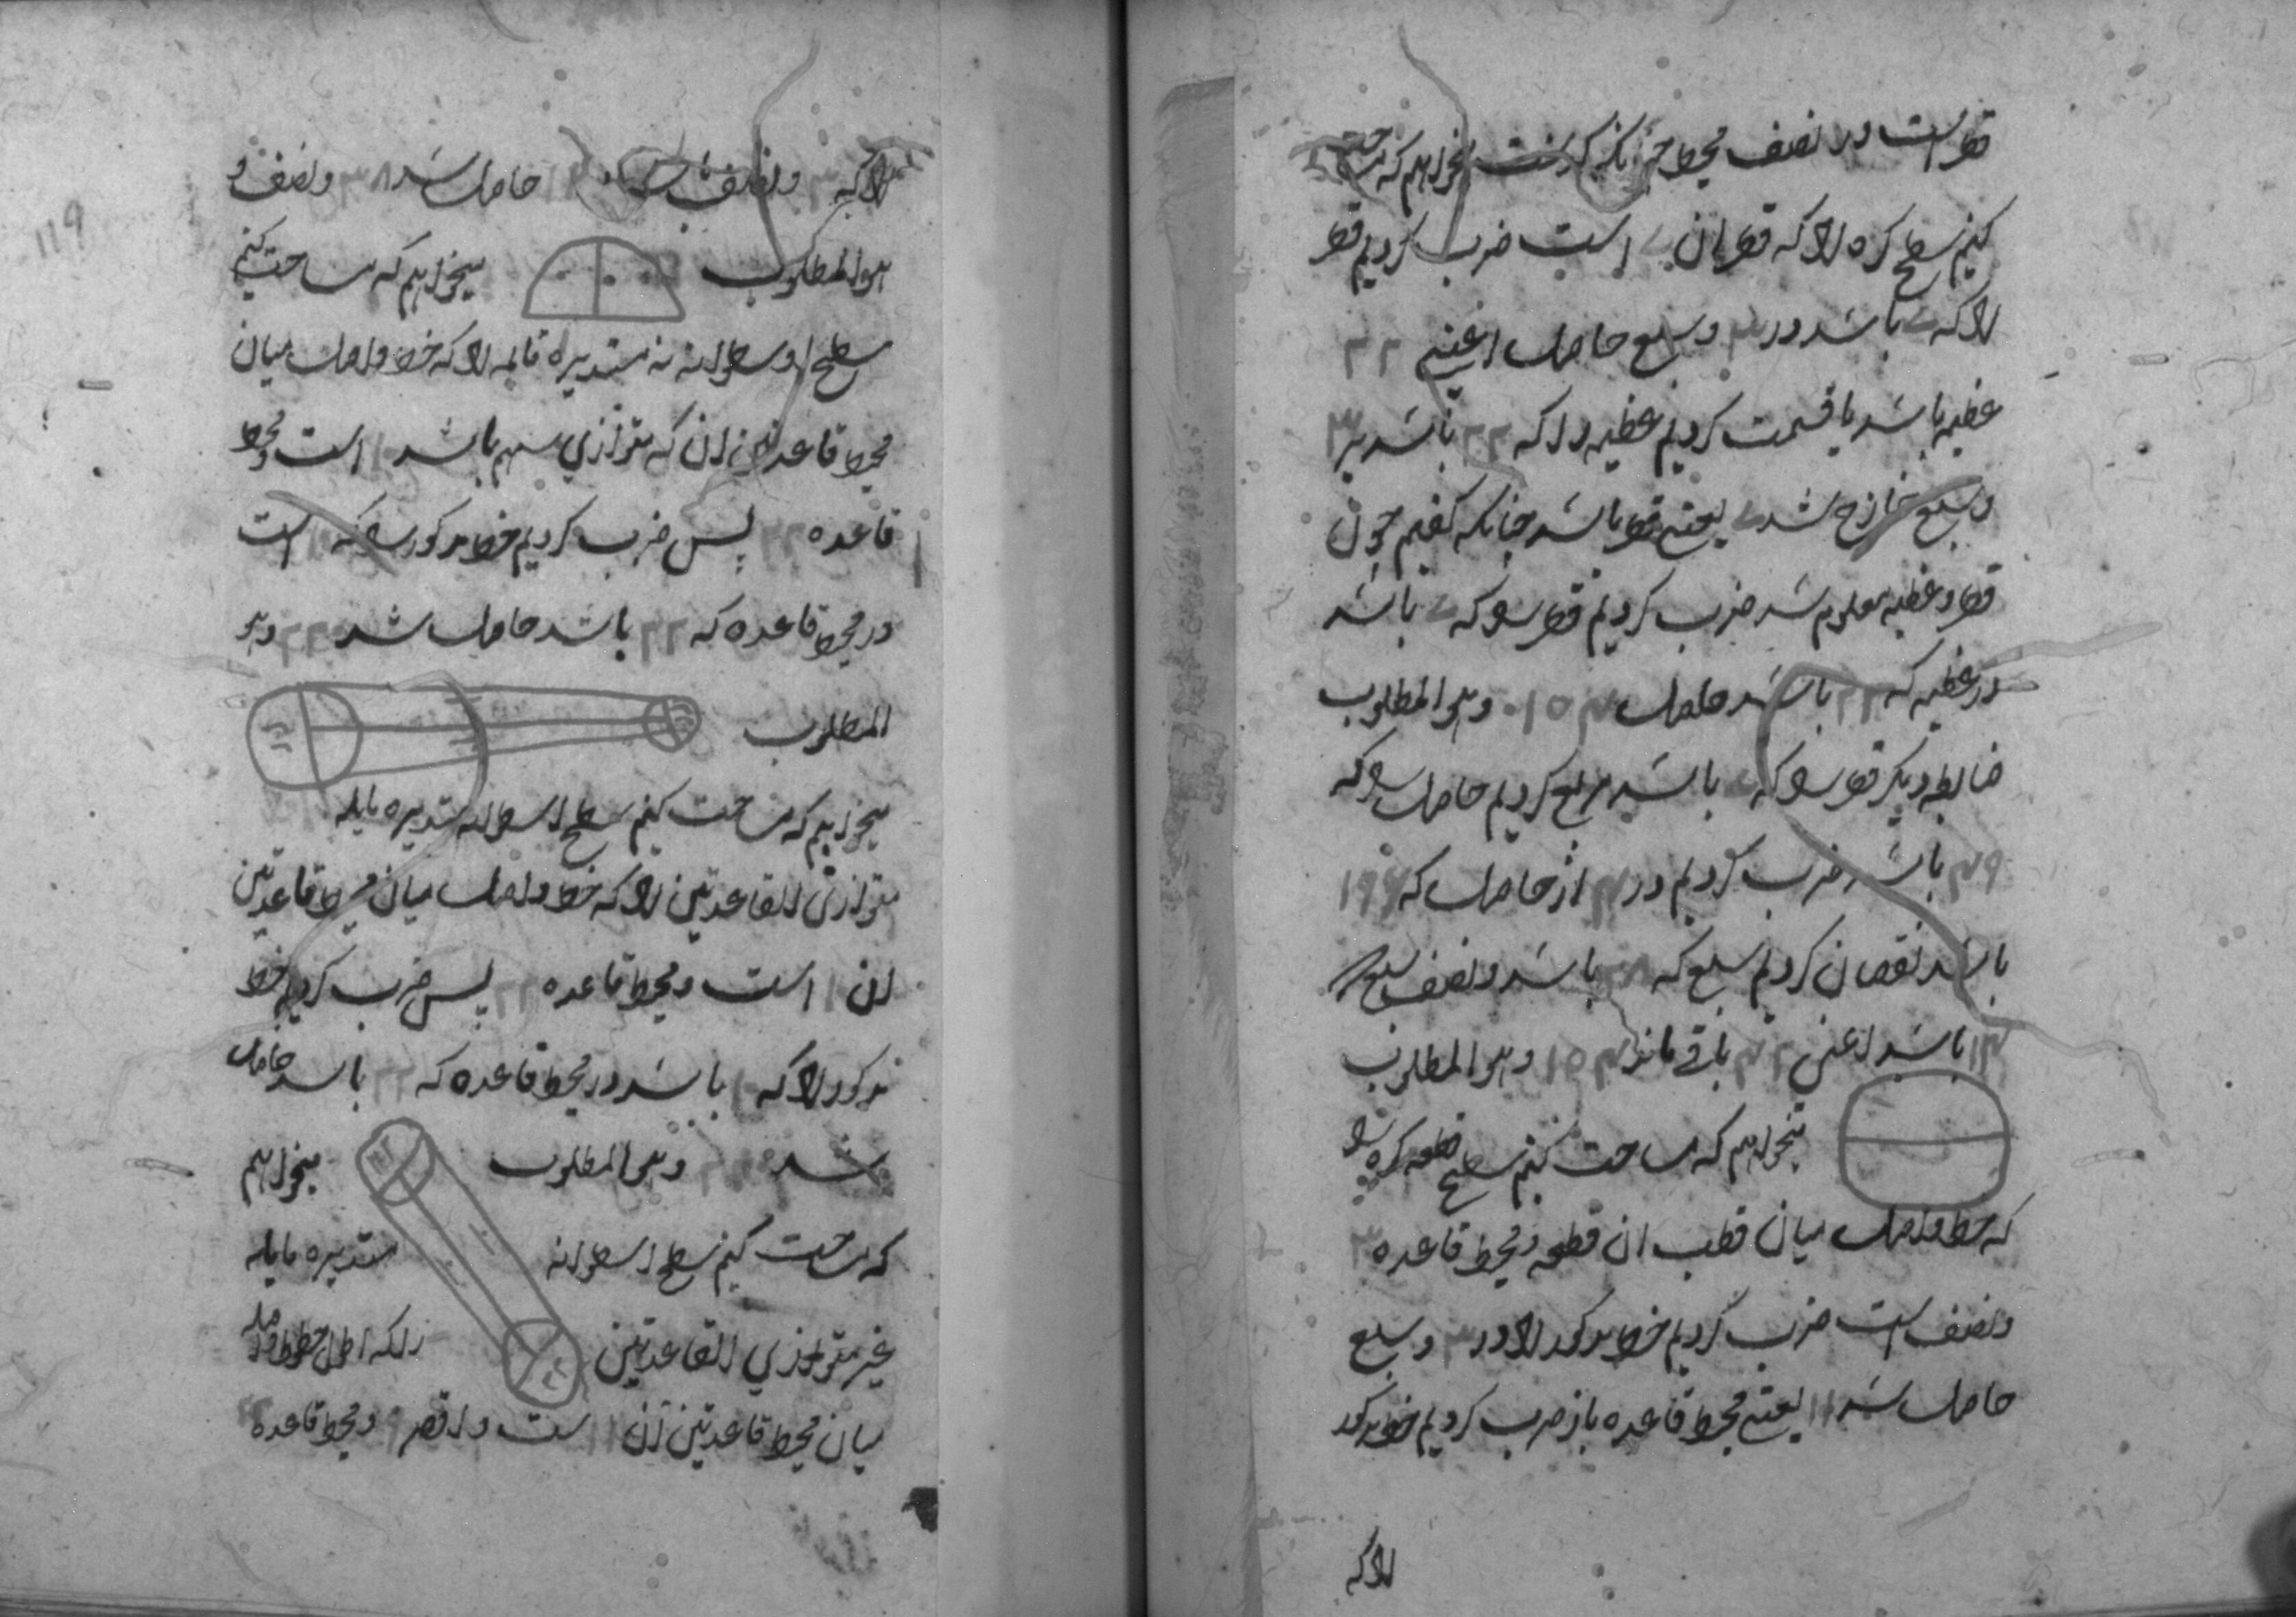 قطر است در نصف محیط چنانکه گذشت میخواهم که مساحت
کنیم سطح کره را که قطر ان ۷ است ضرب کردیم قطر
را که ۷ باشد در ۳ و سبع حاصل اعنی ۲۲
عظیمه باشد یا قسمت کردیم عظیمه را که ۲۲ باشد بر ۳
و سبع خارج شد ۷ یعنی قطر باشد چنانکه کفتیم چون
قطر و عظیمه معلوم شد ضرب کردیم قطر را که ۷ باشد
در عظیمه که ۲۲ باشد حاصل ۱۵۴ وهو المطلوب
ضابطه دیکر قطر را که ۷ باشد مربع کردیم حاصل را که
۴۹ باشد ضرب کردیم در ۴ از حاصل که ۱۹۶
باشد نقصان کردیم سبع که ۲۸ باشد و نصف سبع
۱۴ باشد اعنی ۴۲ باقی ماند ۱۵۴ وهو المطلوب
میخواهم که مساحت کنیم سطح قطعه کره را
که خط واصل میان قطب ان قطعه و محیط قاعده ۳
و نصف است ضرب کردیم خط مذکور را در ۳ و سبع
حاصل شد ۱۱ یعنی محیط قاعده باز ضرب کردیم خط مذکور
را که
را که ۳ و نصف باشد در ۱۱ حاصل شد ۳۸ و نصف و
هو المطلوب
میخواهم که مساحت کنیم
سطح اسطوانه مستدیره قایمه را که خط واصل میان
محیط قاعدتین ان که متوازی سهم باشد ۱۰ است و محیط
قاعده ۲۲ پس ضرب کردیم خط مذکور را که ۱۰ است
در محیط قاعده که ۲۲ باشد حاصل شد ۲۲۰ وهو
المطلوب
میخواهم که مساحت کنیم سطح اسطوانه مستدیره مایله
متوازی القاعدتین را که خط واصل میان محیط قاعدتین
ان ۱۰ است و محیط قاعده ۲۲ پس ضرب کردیم خط
مذکور را که ۱۰ باشد در محیط قاعده که ۲۲ باشد حاصل
شد ۲۲۰ وهو المطلوب
میخواهم
که مساحت کنیم سطح اسطوانه
مستدیره مایله
غیر متوازی القاعدتین
را که اطول خطوط واصله
میان محیط قاعدتین ان ۱۱ است و اقصر ۹ و محیط قاعده